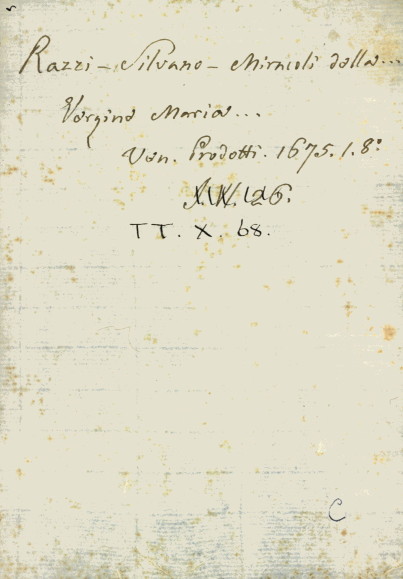 Razzi - Silvano - Miracoli della...
Vergine Maria...
Ven. Prodotti. 1675. 1. 8º
TT. X. 68.
C